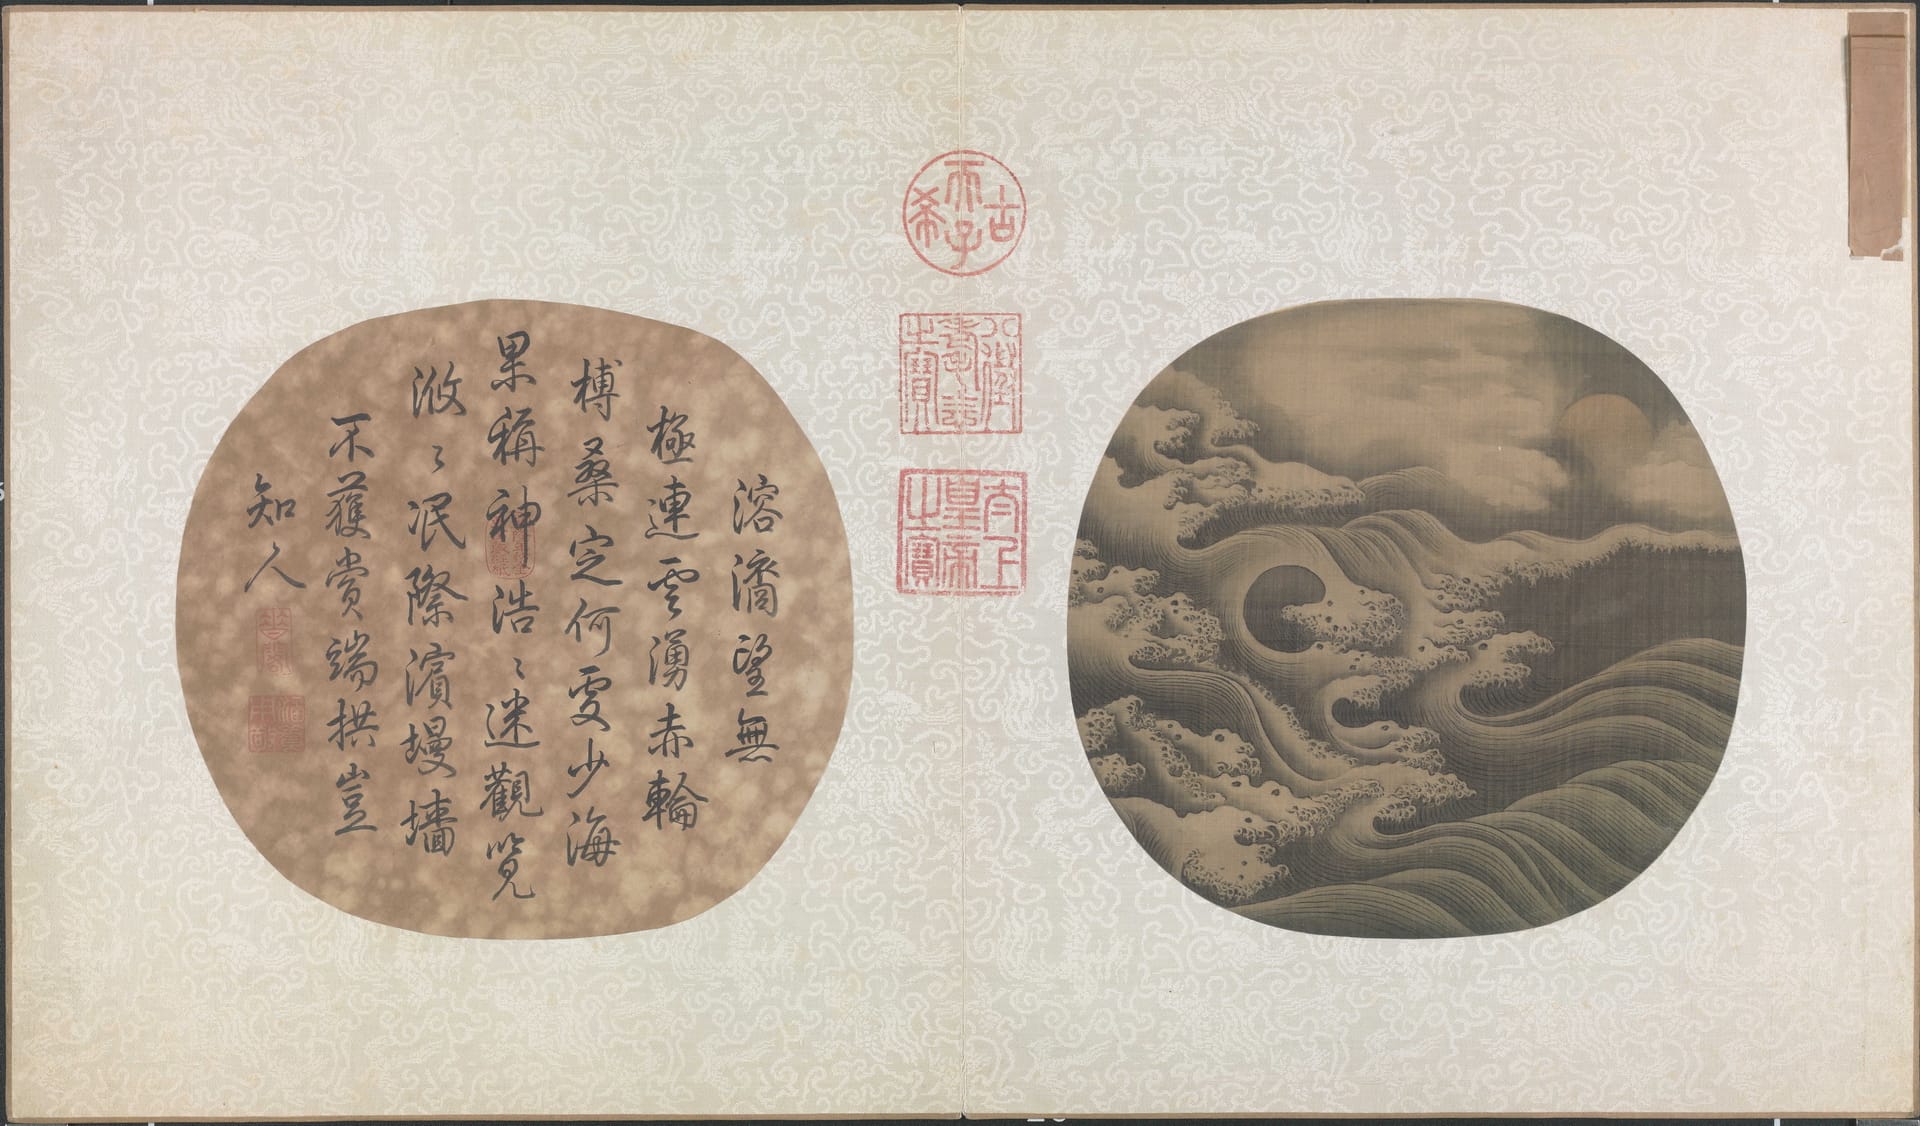 古希天子
八徵耄念之寶
太上皇帝之寶
溶望無
極連雲湧赤輪
榑桑定何處少海
果稱神浩〻迷觀覽
浟〻泯際濵墁墻
不獲賞端拱豈
知人